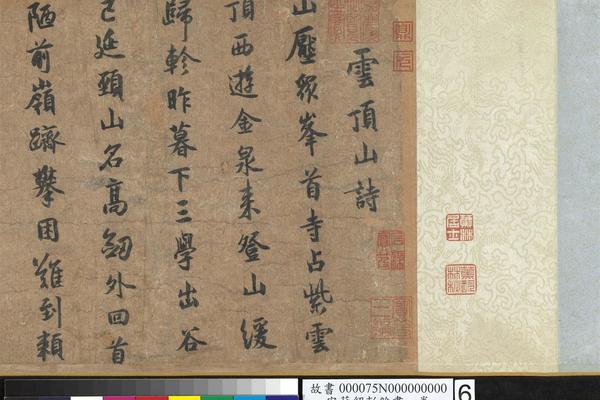 雲頂山詩
山壓衆峯首寺占紫雲
頂西遊金泉来登山緩
歸軫昨暮下三學出谷
已延頸山名高劒外回首
陋前嶺躋攀困難到頼
故書 000075N000000000
6